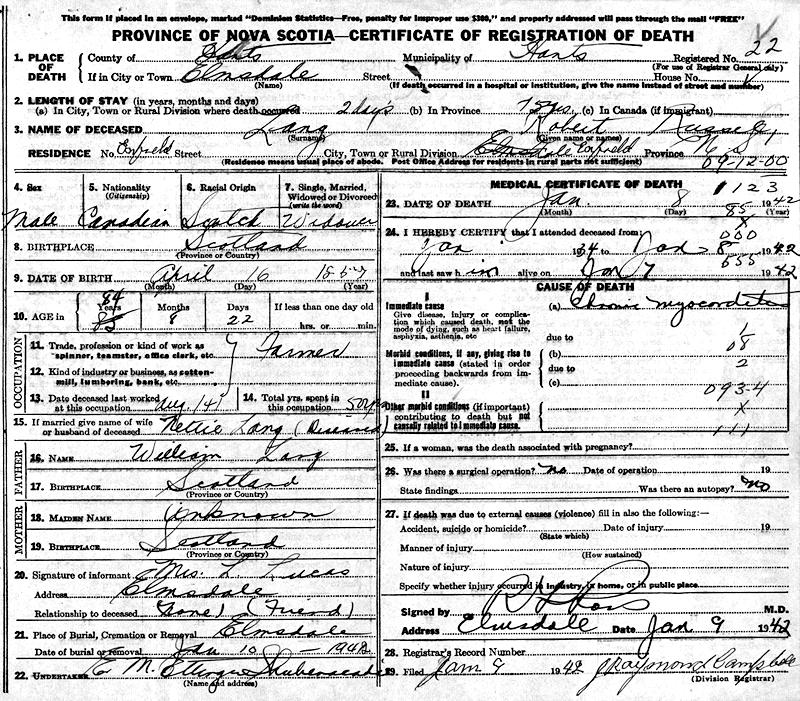 This form if placed in an envelope, marked "Dominion Statistics—Free, penalty for improper use $300," and properly addressed will pass through the mail "FREE"
PROVINCE OF NOVA SCOTIA—CERTIFICATE OF REGISTRATION OF DEATH
1. PLACE OF DEATH
County of Hants Municipality of Hants Registered No. 22
(For use of Registrar General only)
If in City or Town Elmsdale Street House No.
(Name) (If death occurred in a hospital or institution, give the name instead of street and number)
2. LENGTH OF STAY (in years, months and days)
(a) In City, Town or Rural Division where death occurred 2 days (b) In Province 75 yrs. (c) In Canada (if immigrant)
3. NAME OF DECEASED Lang Robert
(Surname) (Given name or names)
RESIDENCE No. Enfield Street City, Town or Rural Division Elmsdale Enfield Province N.S.
(Residence means usual place of abode. Post Office Address for residents in rural parts not sufficient) 09-12-00
4. Sex 5. Nationality (Citizenship) 6. Racial Origin 7. Single, Married, Widowed or Divorced (write the word)
Male Canadian Scotch Widower
8. BIRTHPLACE Scotland
(Province or Country)
9. DATE OF BIRTH April 16 1857
(Month) (Day) (Year)
10. AGE in 84 85 Years Months 8 Days 22 If less than one day old
hrs. or min.
OCCUPATION
11. Trade, profession or kind of work as spinner, teamster, office clerk, etc. Farmer
12. Kind of industry or business, as cotton-mill, lumbering, bank, etc.
13. Date deceased last worked at this occupation Aug. 41 14. Total yrs. spent in this occupation 50 yrs
15. If married give name of wife or husband of deceased Nettie Lang (Deceased)
FATHER
16. NAME William Lang
17. BIRTHPLACE Scotland
(Province or Country)
MOTHER
18. MAIDEN NAME Unknown
19. BIRTHPLACE Scotland
(Province or Country)
20. Signature of informant Mrs. L. Lucas
Address Elmsdale
Relationship to deceased (None) (Friend)
21. Place of Burial, Cremation or Removal Elmsdale
Date of burial or removal Jan 10 - 1942
22. UNDERTAKER E M. Ettinger Shubenacadie
(Name and address)
MEDICAL CERTIFICATE OF DEATH 1123
23. DATE OF DEATH Jan. 8 1942
(Month) (Day) (Year)
85
24. I HEREBY CERTIFY that I attended deceased from:
000
Jan 1934 to Jan 8 1942
055
and last saw him alive on Jan 7 1942
CAUSE OF DEATH
I
Immediate cause (a) Chronic myocarditis
Give disease, injury or complication which caused death, not the mode of dying, such as heart failure, asphyxia, asthenia, etc
due to
08
Morbid conditions, if any, giving rise to immediate cause (stated in order proceeding backwards from immediate cause). (b)
2
due to
(c)
093-4
II
Other morbid conditions (if important) contributing to death but not causally related to immediate cause.
X
111
25. If a woman, was the death associated with pregnancy?
26. Was there a surgical operation? no Date of operation 19
State findings Was there an autopsy? no
27. If death was due to external causes (violence) fill in also the following:—
Accident, suicide or homicide? Date of injury 19
(State which)
Manner of injury
(How sustained)
Nature of injury
Specify whether injury occurred in industry, in home, or in public place
Signed by M.D.
Address Elmsdale Date Jan 9 1942
28. Registrar's Record Number
29. Filed Jan 9 1942 J Raymond Campbell
(Division Registrar)